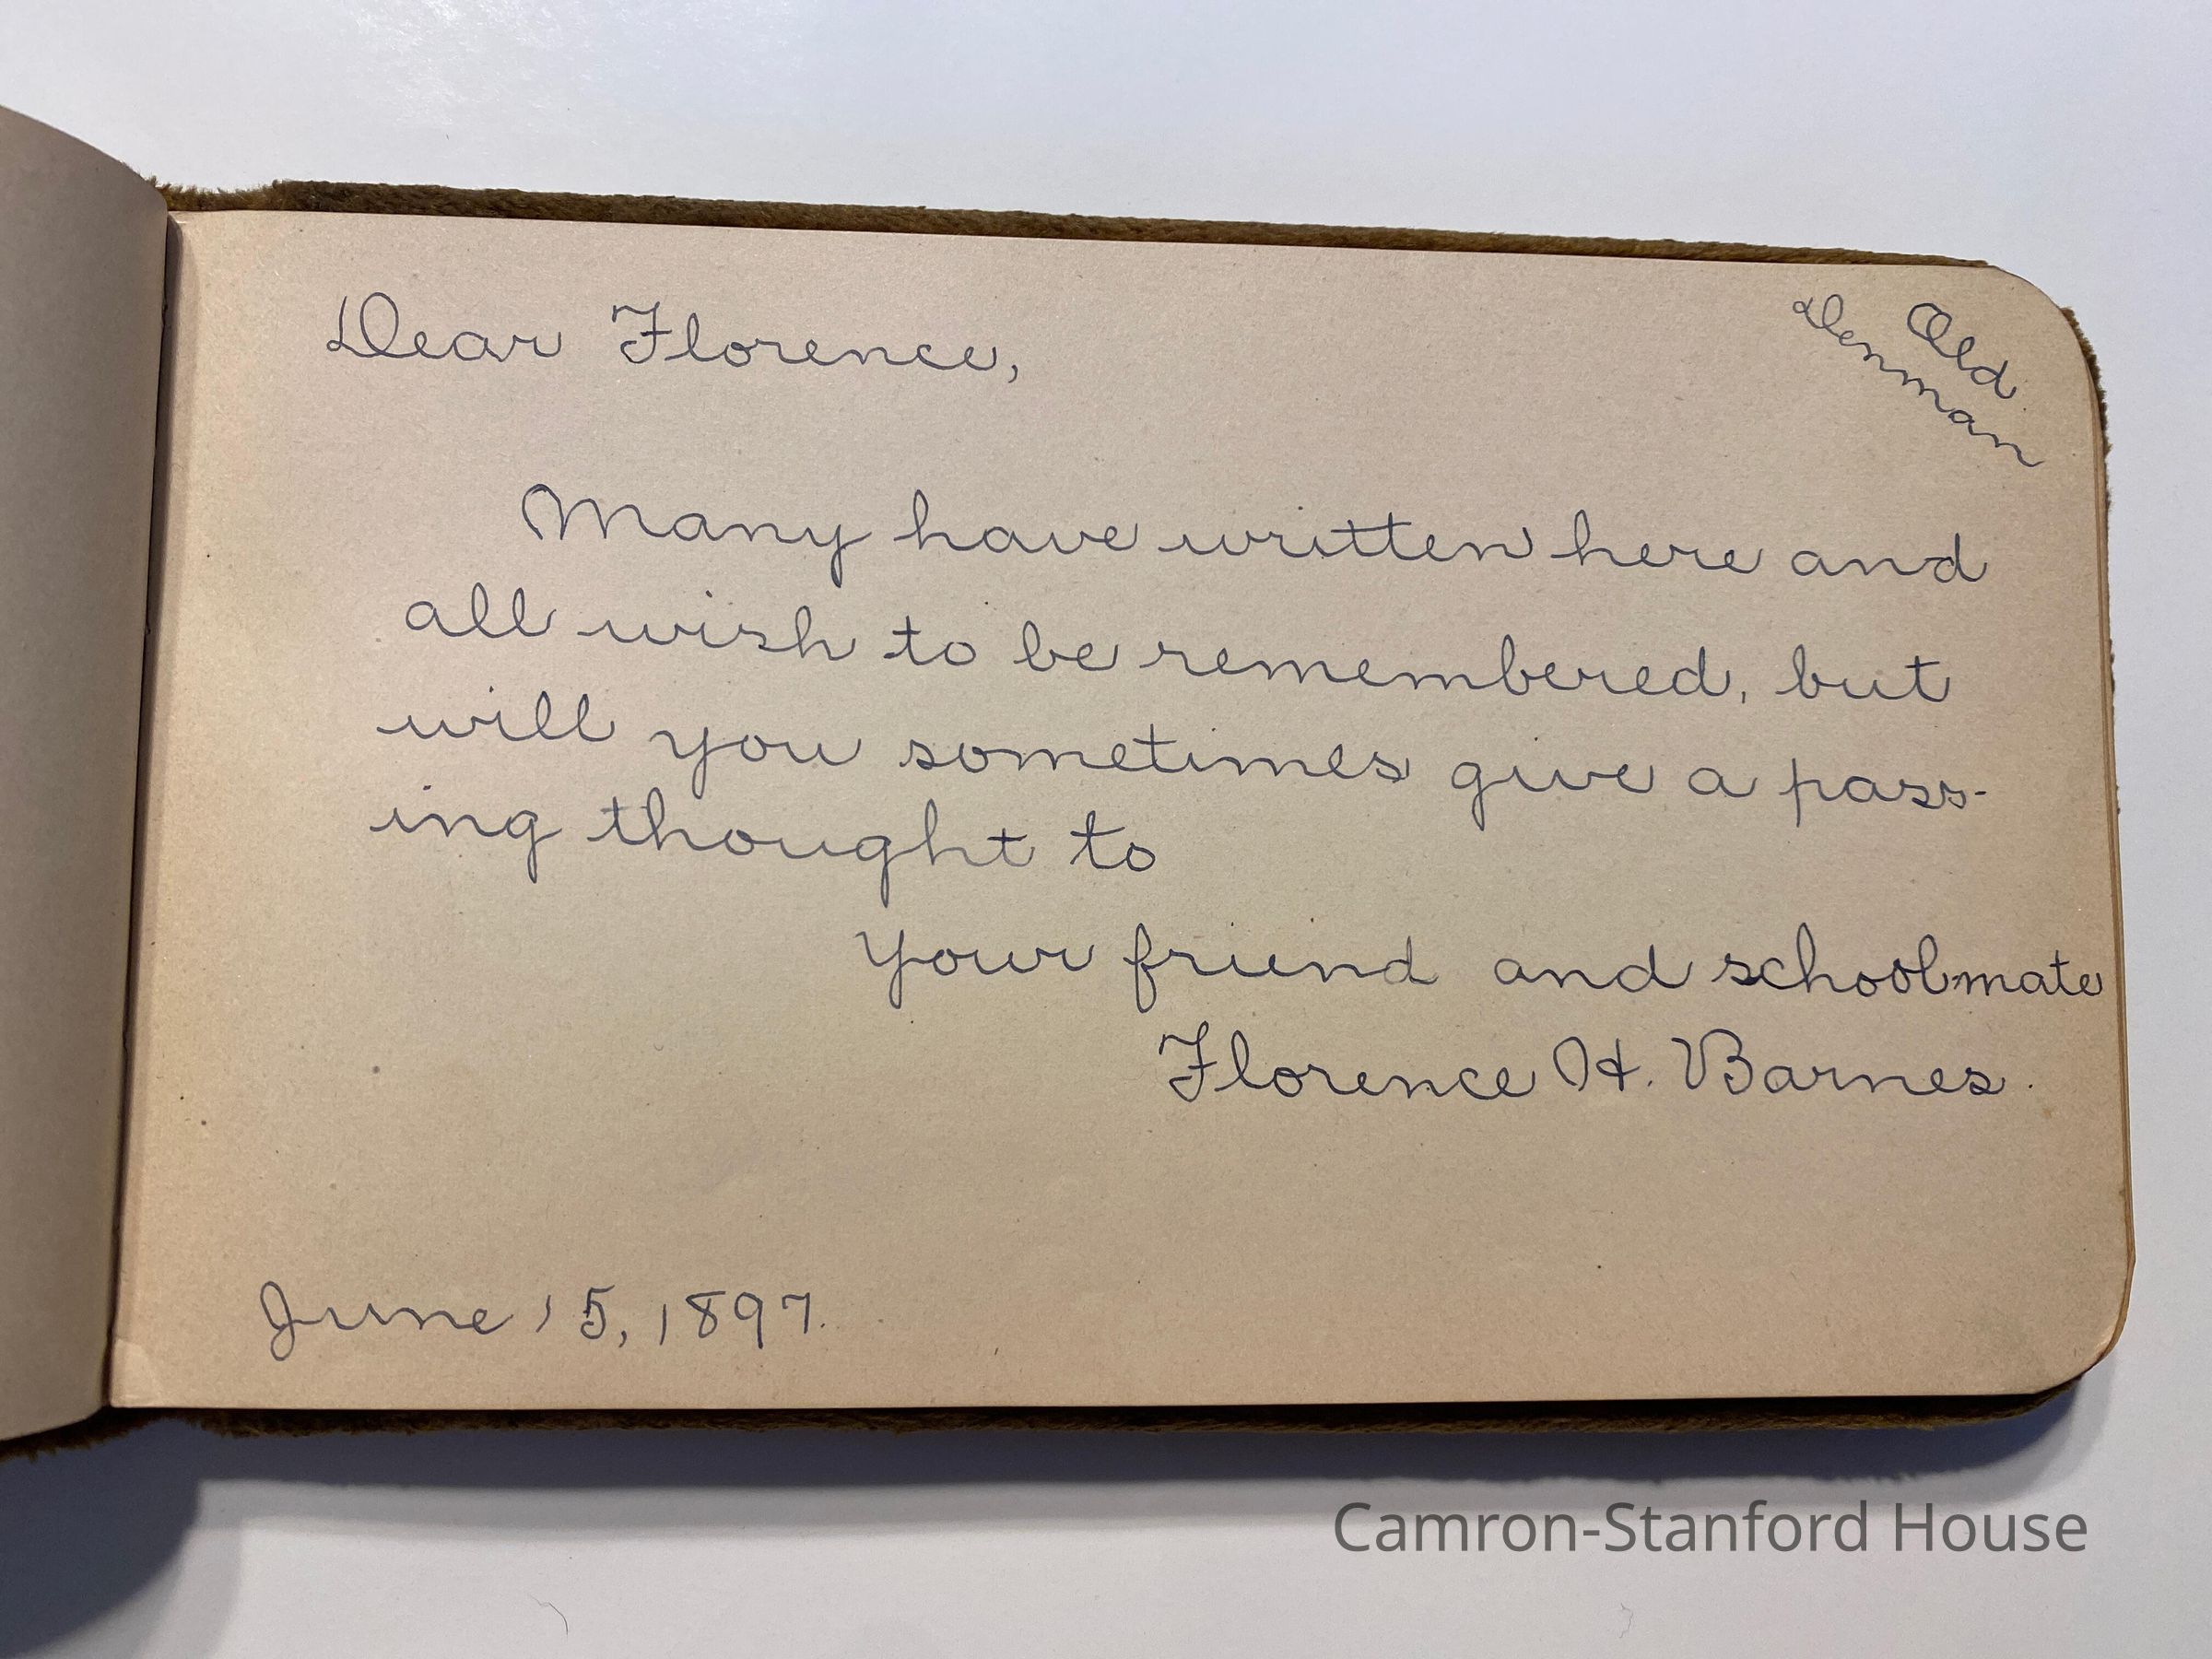 Dear Florence,
Old
Denman
Many have written here and
all wish to be remembered, but
will you sometimes give a pass-
ing thought to
Your friend and schoolmate
Florence H. Barnes.
June 15, 1897.
Camron-Stanford House